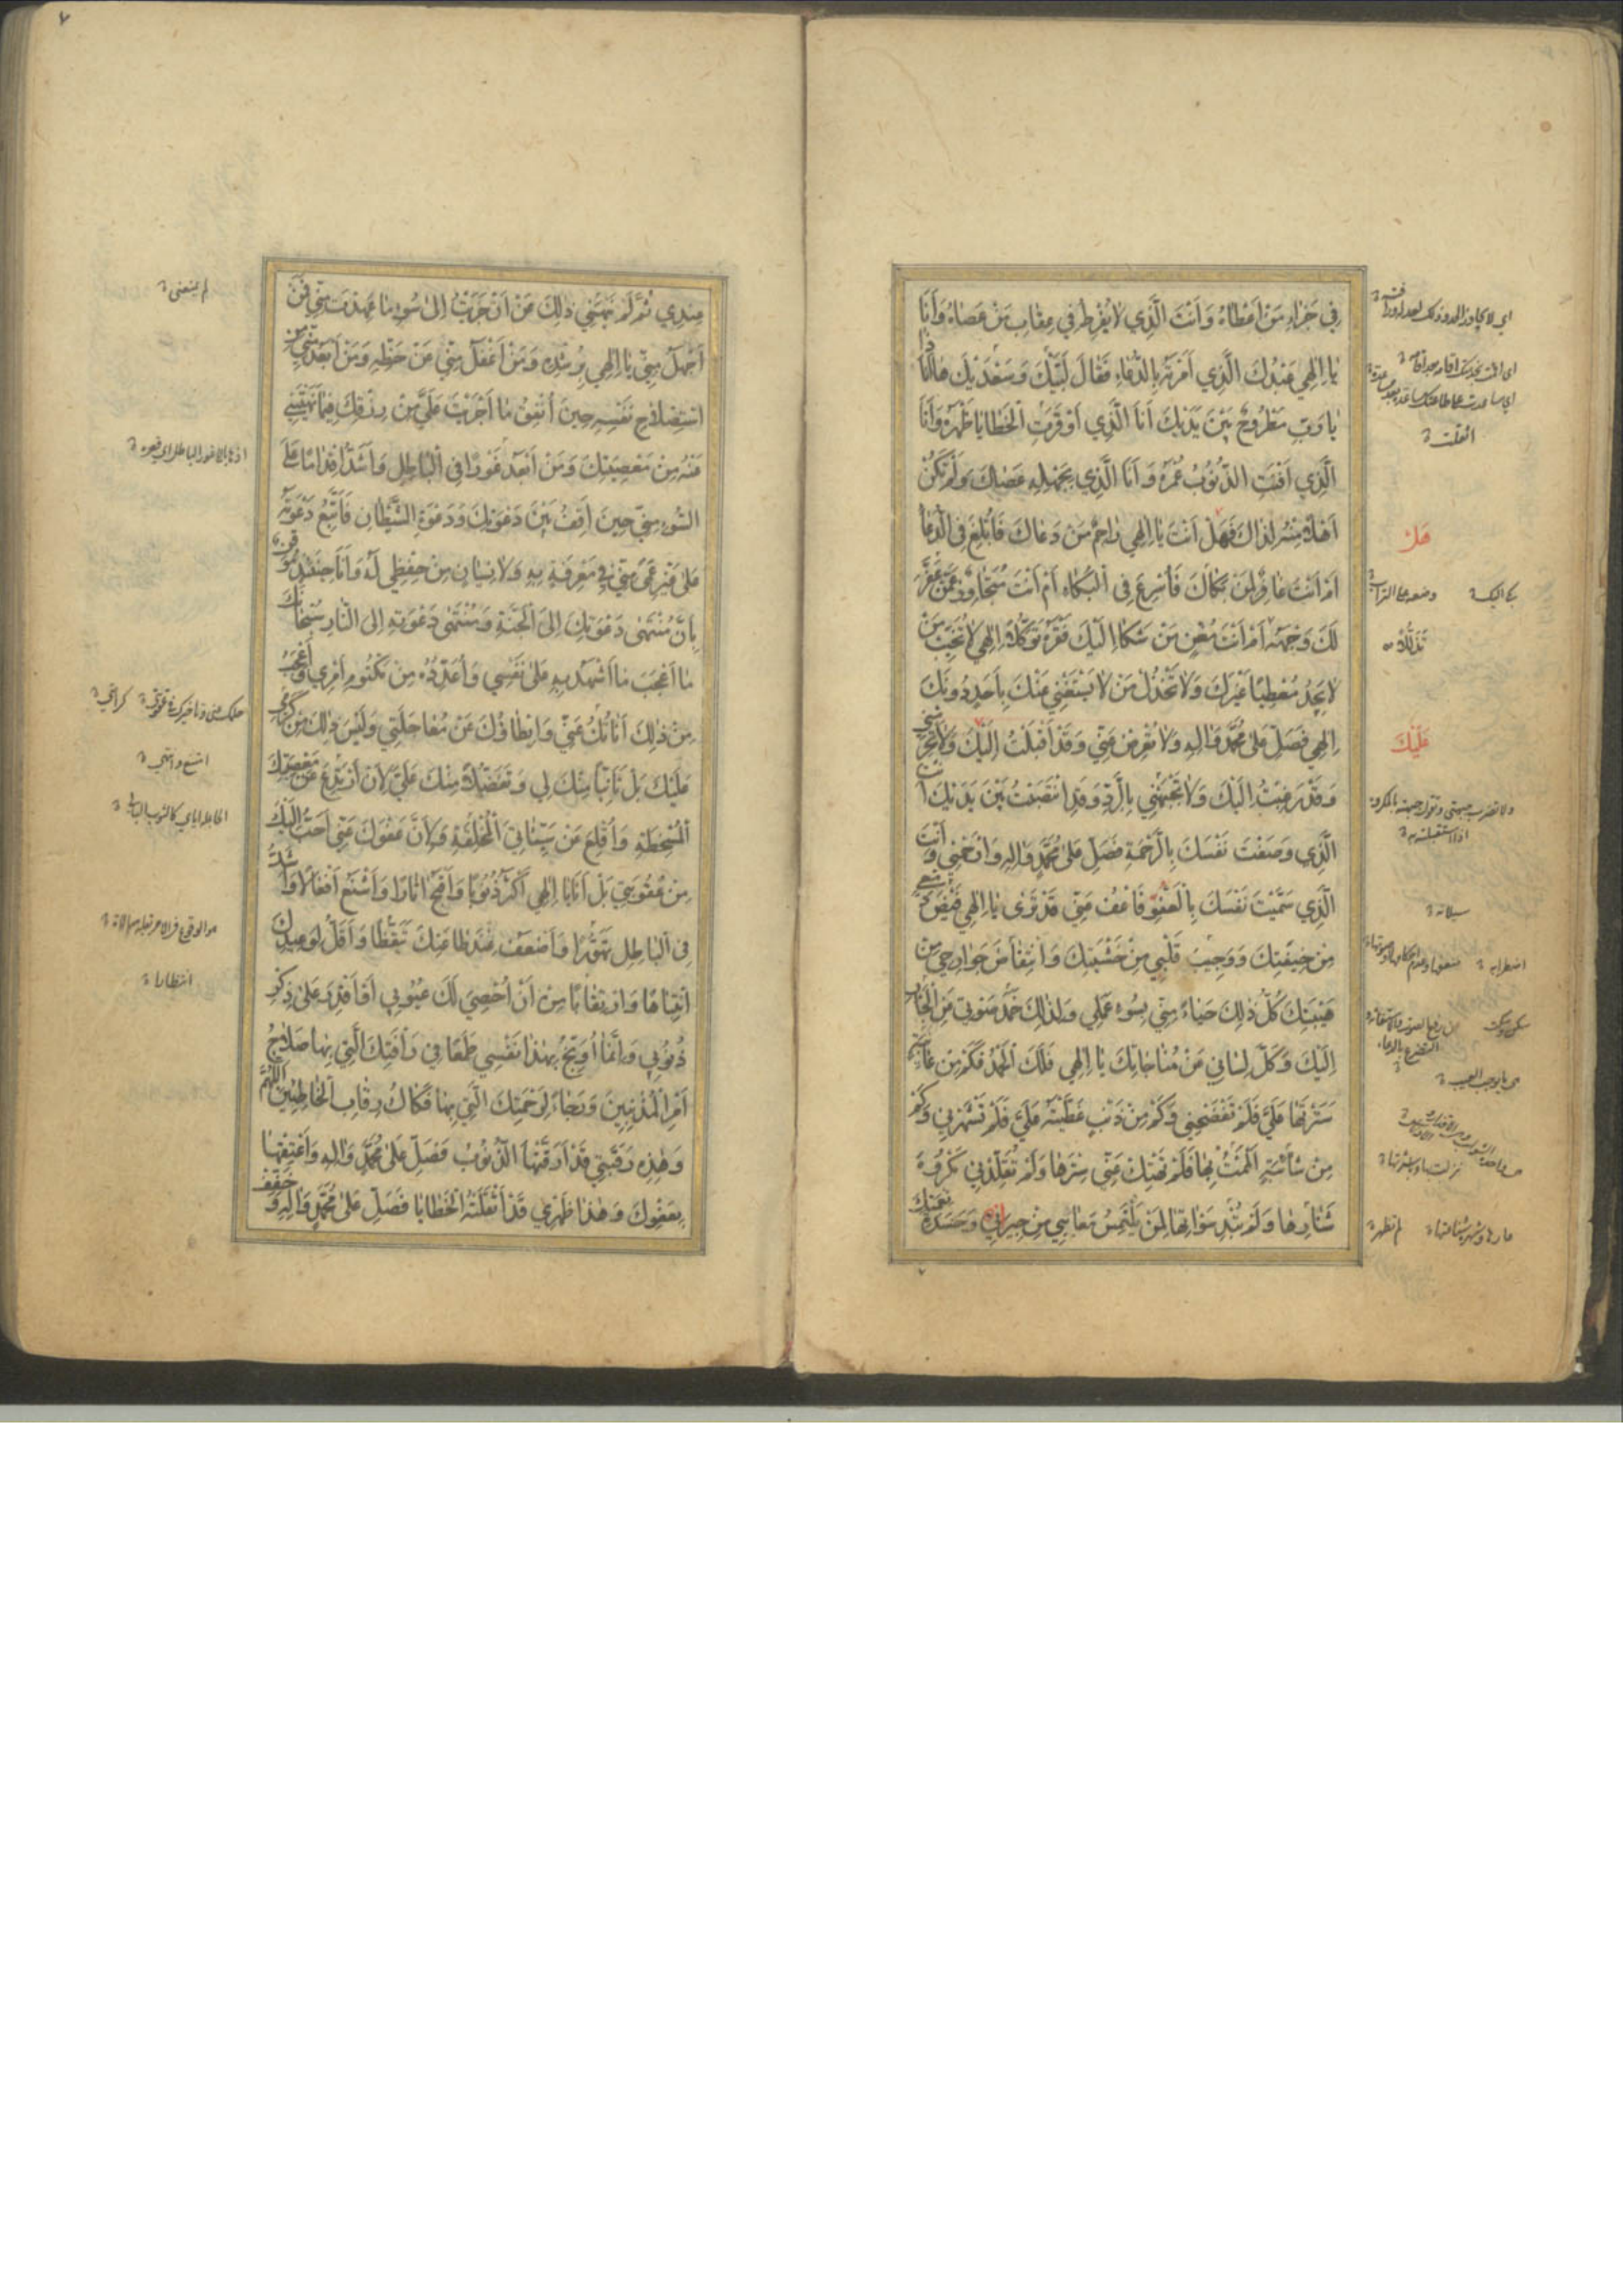 فِي جَزَاءِ مَنْ أَعْطَاهُ وَأَنْتَ الَّذِي لَا يُفْرِطُ فِي عِقَابِ مَنْ عَصَاهُ وَأَنَا
يَا إِلٰهِي عَبْدُكَ الَّذِي أَمَرْتَهُ بِالدُّعَاءِ فَقَالَ لَبَّيْكَ وَسَعْدَيْكَ هَا أَنَا ذَا
يَا رَبِّ مَطْرُوحٌ بَيْنَ يَدَيْكَ أَنَا الَّذِي أَوْقَرَتِ الْخَطَايَا ظَهْرَهُ وَأَنَا
الَّذِي أَفْنَتِ الذُّنُوبُ عُمُرَهُ وَأَنَا الَّذِي بِجَهْلِهِ عَصَاكَ وَلَمْ تَكُنْ
أَهْلًا مِنْهُ لِذَاكَ فَهَلْ أَنْتَ يَا إِلٰهِي رَاحِمٌ مَنْ دَعَاكَ فَأُبْلِغَ فِي الدُّعَاءِ
أَمْ أَنْتَ غَافِرٌ لِمَنْ بَكَاكَ فَأُسْرِعَ فِي الْبُكَاءِ أَمْ أَنْتَ مُتَجَاوِزٌ عَمَّنْ عَفَّرَ
لَكَ وَجْهَهُ أَمْ أَنْتَ مُغْنٍ مَنْ شَكَا إِلَيْكَ فَقْرَهُ تَوَكُّلًا إِلٰهِي لَا تُخَيِّبْ مَنْ
لَا يَجِدُ مُعْطِيًا غَيْرَكَ وَلَا تَخْذُلْ مَنْ لَا يَسْتَغْنِي عَنْكَ بِأَحَدٍ دُونَكَ
إِلٰهِي فَصَلِّ عَلَى مُحَمَّدٍ وَآلِهِ وَلَا تُعْرِضْ عَنِّي وَقَدْ أَقْبَلْتُ إِلَيْكَ وَلَا تَحْرِمْنِي
وَقَدْ رَغِبْتُ إِلَيْكَ وَلَا تَجْبَهْنِي بِالرَّدِّ وَقَدِ انْتَصَبْتُ بَيْنَ يَدَيْكَ أَنْتَ
الَّذِي وَصَفْتَ نَفْسَكَ بِالرَّحْمَةِ فَصَلِّ عَلَى مُحَمَّدٍ وَآلِهِ وَارْحَمْنِي وَأَنْتَ
الَّذِي سَمَّيْتَ نَفْسَكَ بِالْعَفْوِ فَاعْفُ عَنِّي قَدْ تَرَى يَا إِلٰهِي فَيْضَ دَمْعِي
مِنْ خِيفَتِكَ وَوَجِيبَ قَلْبِي مِنْ خَشْيَتِكَ وَانْتِفَاضَ جَوَارِحِي مِنْ
هَيْبَتِكَ كُلُّ ذٰلِكَ حَيَاءً مِنِّي بِسُوءِ عَمَلِي وَلِذٰلِكَ خَمَدَ صَوْتِي عَنِ الْجَأْرِ
إِلَيْكَ وَكَلَّ لِسَانِي عَنْ مُنَاجَاتِكَ يَا إِلٰهِي فَلَكَ الْحَمْدُ فَكَمْ مِنْ عَائِبَةٍ
سَتَرْتَهَا عَلَيَّ فَلَمْ تَفْضَحْنِي وَكَمْ مِنْ ذَنْبٍ غَطَّيْتَهُ عَلَيَّ فَلَمْ تَشْهَرْنِي وَكَمْ
مِنْ شَائِبَةٍ أَلْمَمْتُ بِهَا فَلَمْ تَهْتِكْ عَنِّي سِتْرَهَا وَلَمْ تُقَلِّدْنِي مَكْرُوهَ
شَنَارِهَا وَلَمْ تُبْدِ سَوْآتِهَا لِمَنْ يَلْتَمِسُ مَعَايِبِي مِنْ جِيرَتِي وَحَسَدَةِ نِعْمَتِكَ
هَلْ
تَذَلُّلًا
عَلَيْكَ
اثقلت
سيلانه
اضطرابه
٧
عِنْدِي ثُمَّ لَمْ يَنْهَنِي ذٰلِكَ عَنْ أَنْ جَرَيْتُ إِلَى سُوءِ مَا عَهِدْتَ مِنِّي فَمَنْ
أَجْهَلُ مِنِّي يَا إِلٰهِي بِرُشْدِهِ وَمَنْ أَغْفَلُ مِنِّي عَنْ حَظِّهِ وَمَنْ أَبْعَدُ مِنِّي مِنِ
اسْتِصْلَاحِ نَفْسِهِ حِينَ أُنْفِقُ مَا أَجْرَيْتَ عَلَيَّ مِنْ رِزْقِكَ فِيمَا نَهَيْتَنِي
عَنْهُ مِنْ مَعْصِيَتِكَ وَمَنْ أَبْعَدُ غَوْرًا فِي الْبَاطِلِ وَأَشَدُّ إِقْدَامًا عَلَى
السُّوءِ مِنِّي حِينَ أَقِفُ بَيْنَ دَعْوَتِكَ وَدَعْوَةِ الشَّيْطَانِ فَأَتَّبِعُ دَعْوَتَهُ
عَلَى غَيْرِ عَمًى مِنِّي فِي مَعْرِفَةٍ بِهِ وَلَا نِسْيَانٍ مِنْ حِفْظِي لَهُ وَأَنَا حِينَئِذٍ مُوقِنٌ
بِأَنَّ مُنْتَهَى دَعْوَتِكَ إِلَى الْجَنَّةِ وَمُنْتَهَى دَعْوَتِهِ إِلَى النَّارِ سُبْحَانَكَ
مَا أَعْجَبَ مَا أَشْهَدُ بِهِ عَلَى نَفْسِي وَأُعَدِّدُهُ مِنْ مَكْتُومِ أَمْرِي وَأَعْجَبُ
مِنْ ذٰلِكَ أَنَاتُكَ عَنِّي وَإِبْطَاؤُكَ عَنْ مُعَاجَلَتِي وَلَيْسَ ذٰلِكَ مِنْ كَرَمِي
عَلَيْكَ بَلْ تَأَنِّيًا مِنْكَ لِي وَتَفَضُّلًا مِنْكَ عَلَيَّ لِأَنْ أَرْتَدِعَ عَنْ مَعْصِيَتِكَ
الْمُسْخِطَةِ وَأُقْلِعَ عَنْ سَيِّئَاتِيَ الْمُخْلِقَةِ وَلِأَنَّ عَفْوَكَ عَنِّي أَحَبُّ إِلَيْكَ
مِنْ عُقُوبَتِي بَلْ أَنَا يَا إِلٰهِي أَكْثَرُ ذُنُوبًا وَأَقْبَحُ آثَارًا وَأَشْنَعُ أَفْعَالًا وَأَشَدُّ
فِي الْبَاطِلِ تَهَوُّرًا وَأَضْعَفُ عِنْدَ طَاعَتِكَ تَيَقُّظًا وَأَقَلُّ لِوَعِيدِكَ
انْتِبَاهًا وَارْتِقَابًا مِنْ أَنْ أُحْصِيَ لَكَ عُيُوبِي أَوْ أَقْدِرَ عَلَى ذِكْرِ
ذُنُوبِي وَإِنَّمَا أُوَبِّخُ بِهٰذَا نَفْسِي طَمَعًا فِي رَأْفَتِكَ الَّتِي بِهَا صَلَاحُ
أَمْرِ الْمُذْنِبِينَ وَرَجَاءً لِرَحْمَتِكَ الَّتِي بِهَا فَكَاكُ رِقَابِ الْخَاطِئِينَ اللّٰهُمَّ
وَهٰذِهِ رَقَبَتِي قَدْ أَرَقَّتْهَا الذُّنُوبُ فَصَلِّ عَلَى مُحَمَّدٍ وَآلِهِ وَأَعْتِقْهَا
بِعَفْوِكَ وَهٰذَا ظَهْرِي قَدْ أَثْقَلَتْهُ الْخَطَايَا فَصَلِّ عَلَى مُحَمَّدٍ وَآلِهِ وَخَفِّفْ
لم يمنعنى
انتظارا